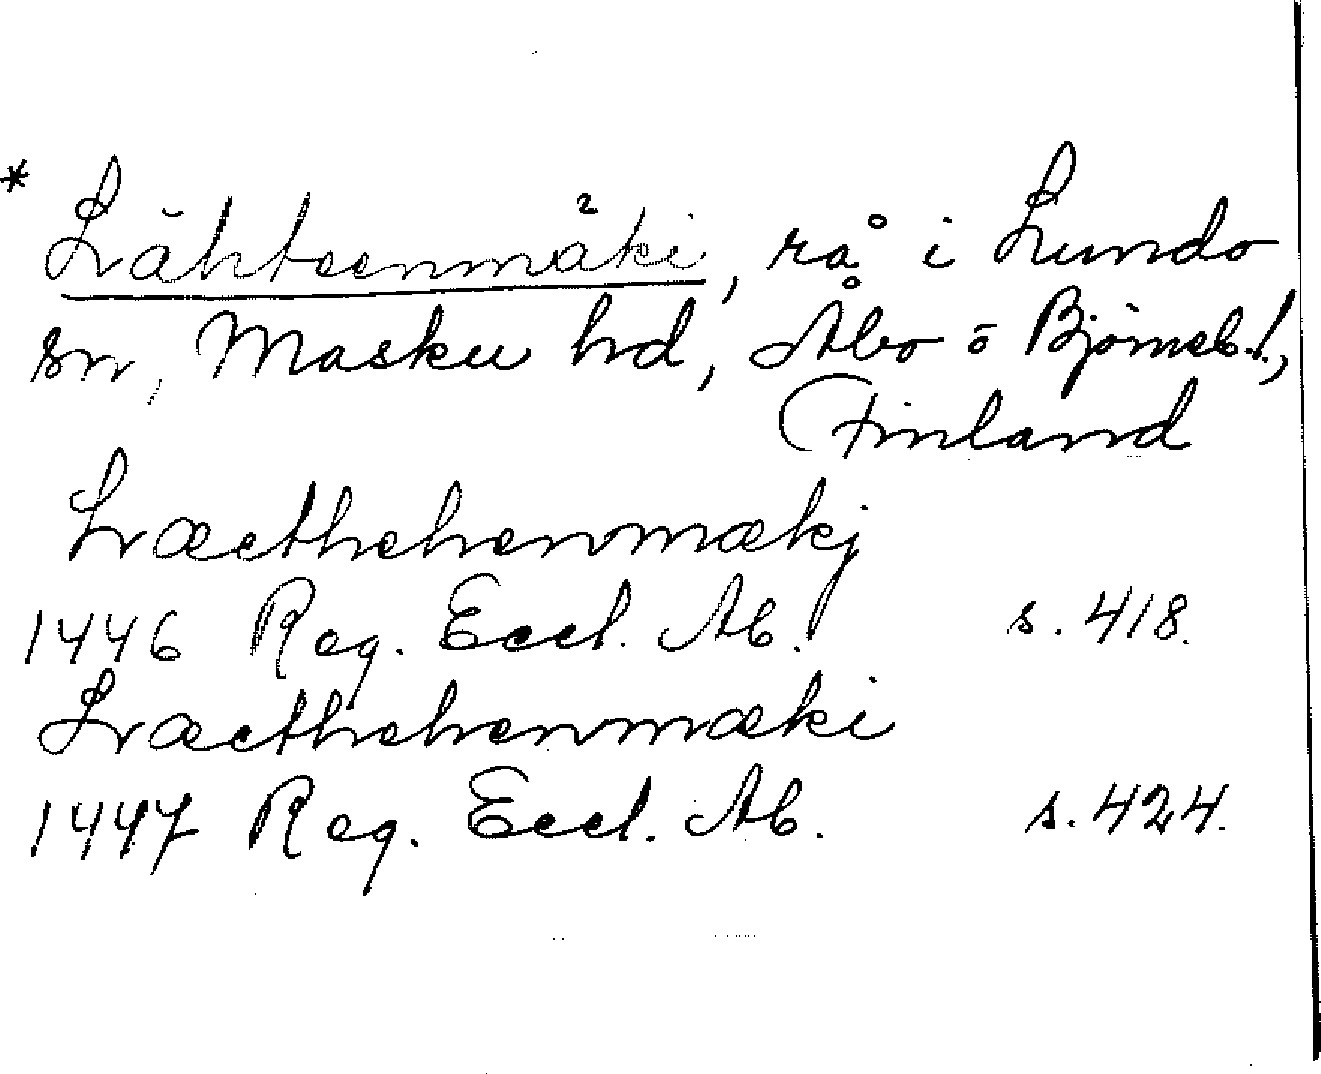 * Lähteenmäki, rå i Lundo
sn, Masku hd, Åbo o Björneb.l.,
Finland
Læcthehenmækj
1446 Reg. Eccl. Ab. s. 418.
Læcthehenmæki
1447 Reg. Eccl. Ab. s. 424.